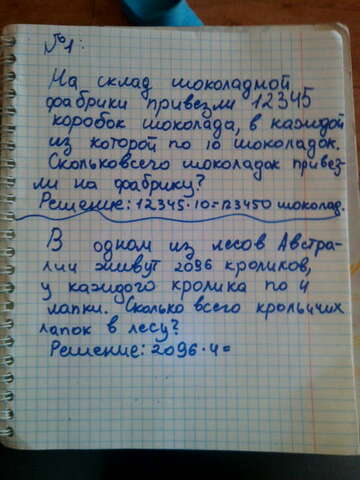 №1:
На склад шоколадной
фабрики привезли 12345
коробок шоколада, в каждой
из которой по 10 шоколадок.
Скольковсего шоколадок привез-
ли на фабрику?
Решение: 12345·10=123450 шоколад.
В одном из лесов Австра-
лии живут 2096 кроликов,
у каждого кролика по 4
лапки. Сколько всего крольичих
лапок в лесу?
Решение: 2096·4=